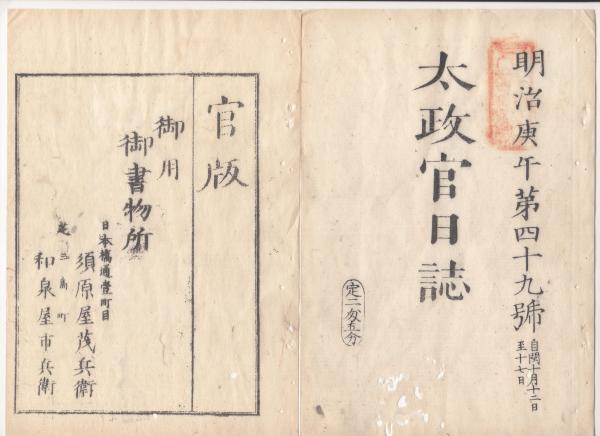 明治庚午第四十九號
自閏十月十二日
至十七日
太政官日誌
定二匁五分
官版
御用
御書物所
日本橋通壹町目
須原屋茂兵衛
芝三島町
和泉屋市兵衛